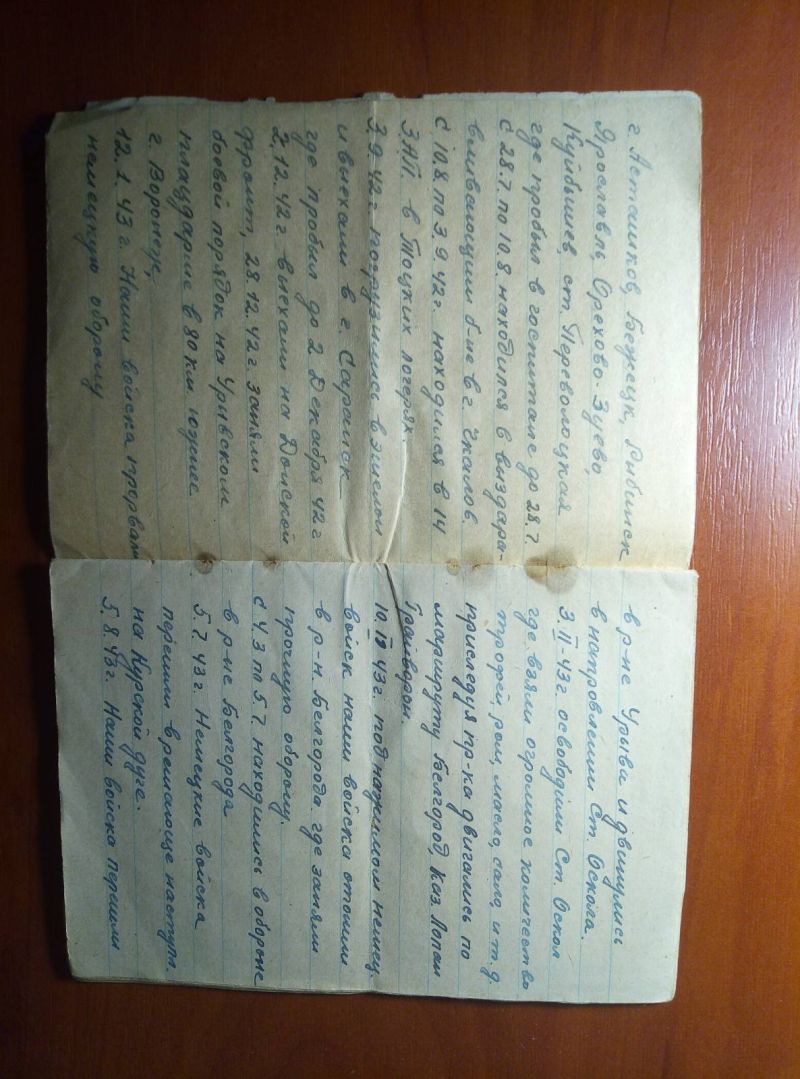 г. Асташков, Бежецк, Рыбинск
Ярославль, Орехово-Зуево,
Куйбышев, ст. Переволоцкая
где пробыл в госпитале до 28.7
с 28.7 по 10.8. находился в выздара-
вливающим б-не в г. Чкалов
с 10.8 по 3.9.42г. находился в 14
ЗАП. в Тоцких логерях.
3.9.42г. погрузились в эшелон
и выехали в г. Саранск
где пробыл до 2 Декабря 42г
2.12.42г. выехали на Донской
Фронт, 28.12.42г. заняли
боевой порядок на Урывском
плацдарме в 80 км. южнее
г. Воронеж,
12.1.43г. Наши войска прорвали
немецкую оборону
в р-не Урыва и двинулись
в напровлении Ст. Оскола.
3.II-43г. освободили Ст. Оскол
где взяли огромное количество
трофей, ром, масло, сало, и т.д.
приследуя пр-ка двигались по
маршруту Белгород, Каз. Лопан
Грайворон
10.III 43г. под нажимом немец.
войск наши войска отошли
в р-н. Белгорода где заняли
прочную оборону.
с 4.3 по 5.7. находились в обороне
в р-не Белгорода
5.7.43г. Немецкие войска
перешли в решающе наступл.
на Курской дуге.
5.8.43г. Наши войска перешли